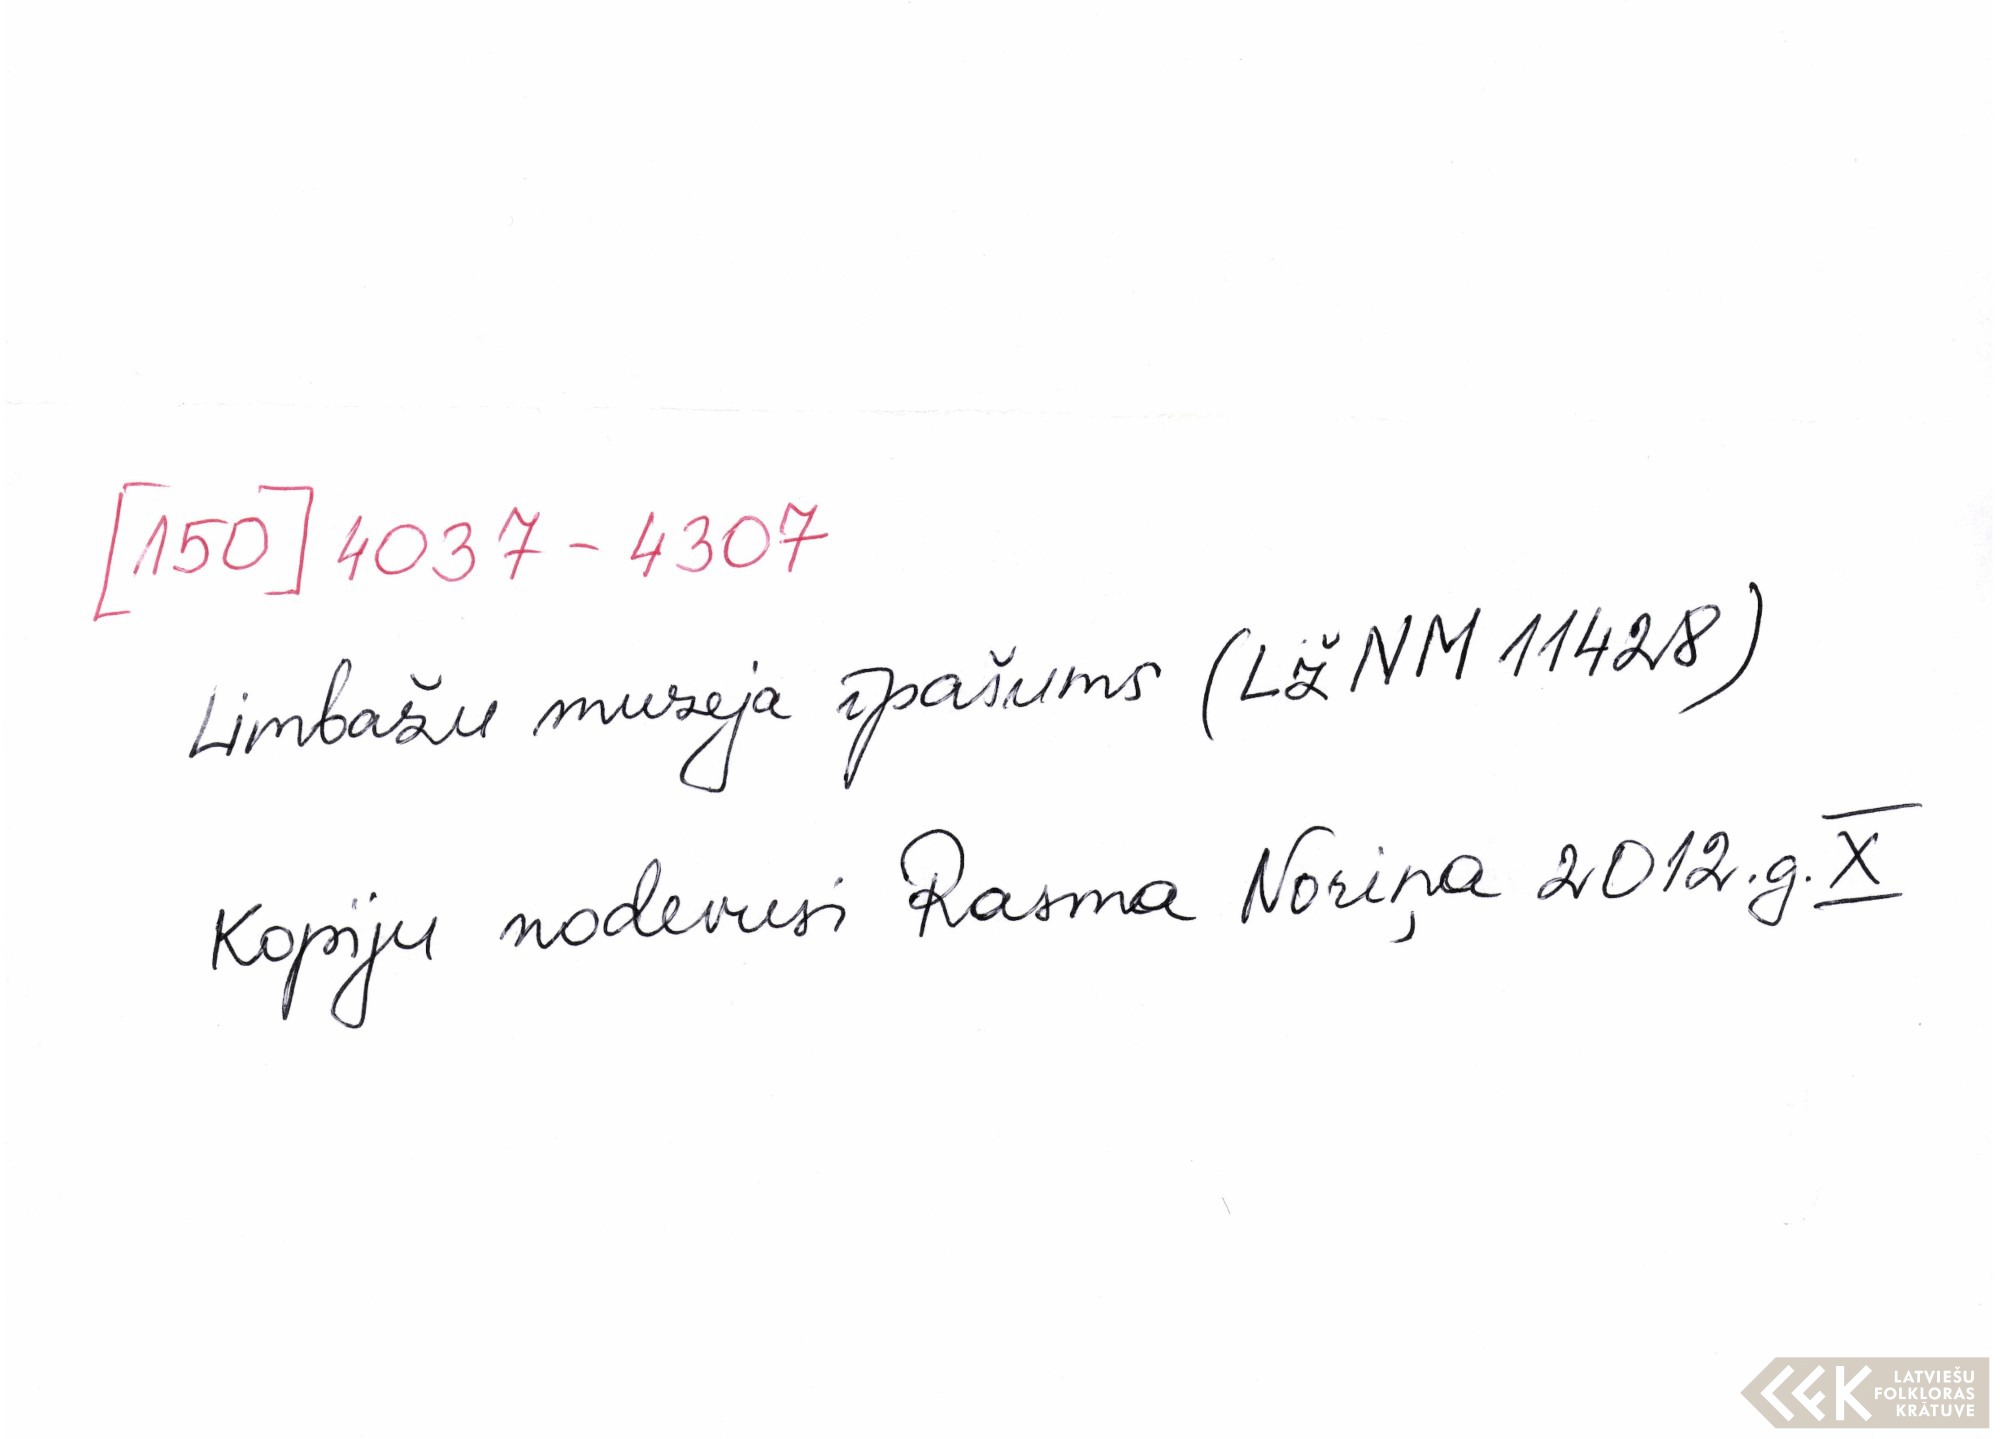 [150] 4037 - 4307
Limbažu muzeja īpašums (LžNM 11428)
Kopiju nodevusi Rasma Noriņa 2012.g. X
LATVIEŠU
FOLKLORAS
KRĀTUVE